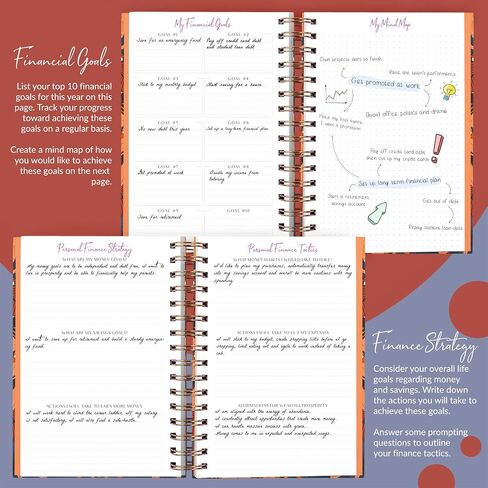 Financial Goals
List your top 10 financial
goals for this year on this
page. Track your progress
toward achieving these
goals on a regular basis.
Create a mind map of how
you would like to achieve
these goals on the next
page.
My Financial Goals
GOAL #1
Save for an emergency fund
GOAL #2
Pay off credit card debt
and student loan debt
GOAL #3
Stick to my monthly budget
GOAL #4
Start saving for a house
GOAL #5
No new debt this year
GOAL #6
Set up a long-term financial plan
GOAL #7
Get promoted at work
GOAL #8
Double my income from
GOAL #9
Save for retirement
GOAL #10
My Mind Map
Own projects start to finish
Raise the team's performance
Get promoted at work
Make my boss aware
I want a promotion
Avoid office politics and drama
Pay off credit card debts
then cut up my credit card
Set up long term financial plan
Start a retirement
savings account
Get out of debt
Repay student loan debt
Personal Finance Strategy
WHAT ARE MY MONEY GOALS?
My money goals are to be independent and debt free. I want to
live in prosperity and be able to financially help my parents.
WHAT ARE MY SAVINGS GOALS?
I want to save up for retirement and build a sturdy emergen-
cy fund.
ACTIONS I WILL TAKE TO EARN MORE MONEY
I will work hard to climb the career ladder, if my salary
is not satisfactory, I will also find a side-hustle.
Personal Finance Tactics
WHAT MONEY HABITS I WOULD LIKE TO HAVE?
I'd like to plan my purchases, automatically transfer money
into my savings account and overall be more cautious with my
spending.
ACTIONS I WILL TAKE TO CUT MY EXPENSES
I will stick to my budget, create shopping lists before I go
shopping, limit eating out and cycle to work instead of taking a
cab.
AFFIRMATIONS FOR WEALTH & PROSPERITY
I am aligned with the energy of abundance.
I constantly attract opportunities that create more money.
I can handle massive success with grace.
Money comes to me in expected and unexpected ways.
Finance Strategy
Consider your overall life
goals regarding money
and savings. Write down
the actions you will take to
achieve these goals.
Answer some prompting
questions to outline
your finance tactics.